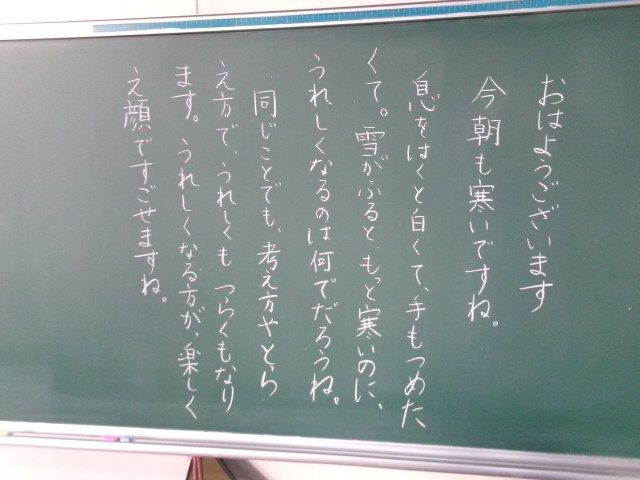 おはようございます
今朝も寒いですね。
息をはくと白くて、手もつめた
くて。雪がふると、もっと寒いのに、
うれしくなるのは何でだろうね。
同じことでも、考え方やとら
え方で、うれしくもつらくもなり
ます。うれしくなる方が、楽しく
え顔ですごせますね。